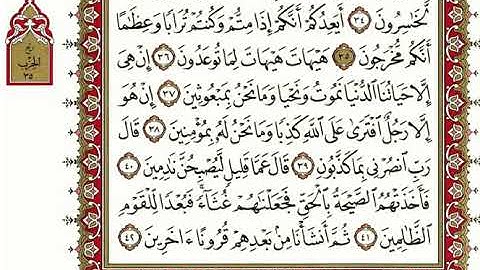 لَّخَٰسِرُونَ ٣٤ أَيَعِدُكُمْ أَنَّكُمْ إِذَا مِتُّمْ وَكُنتُمْ تُرَابًا وَعِظَٰمًا
أَنَّكُم مُّخْرَجُونَ ٣٥ هَيْهَاتَ هَيْهَاتَ لِمَا تُوعَدُونَ ٣٦ إِنْ هِىَ
إِلَّا حَيَاتُنَا ٱلدُّنْيَا نَمُوتُ وَنَحْيَا وَمَا نَحْنُ بِمَبْعُوثِينَ ٣٧ إِنْ هُوَ
إِلَّا رَجُلٌ ٱفْتَرَىٰ عَلَى ٱللَّهِ كَذِبًا وَمَا نَحْنُ لَهُۥ بِمُؤْمِنِينَ ٣٨ قَالَ
رَبِّ ٱنصُرْنِى بِمَا كَذَّبُونِ ٣٩ قَالَ عَمَّا قَلِيلٍ لَّيُصْبِحُنَّ نَٰدِمِينَ ٤٠
فَأَخَذَتْهُمُ ٱلصَّيْحَةُ بِٱلْحَقِّ فَجَعَلْنَٰهُمْ غُثَآءً ۚ فَبُعْدًا لِّلْقَوْمِ
ٱلظَّٰلِمِينَ ٤١ ثُمَّ أَنشَأْنَا مِنۢ بَعْدِهِمْ قُرُونًا ءَاخَرِينَ ٤٢
ربع
الحزب
٣٥